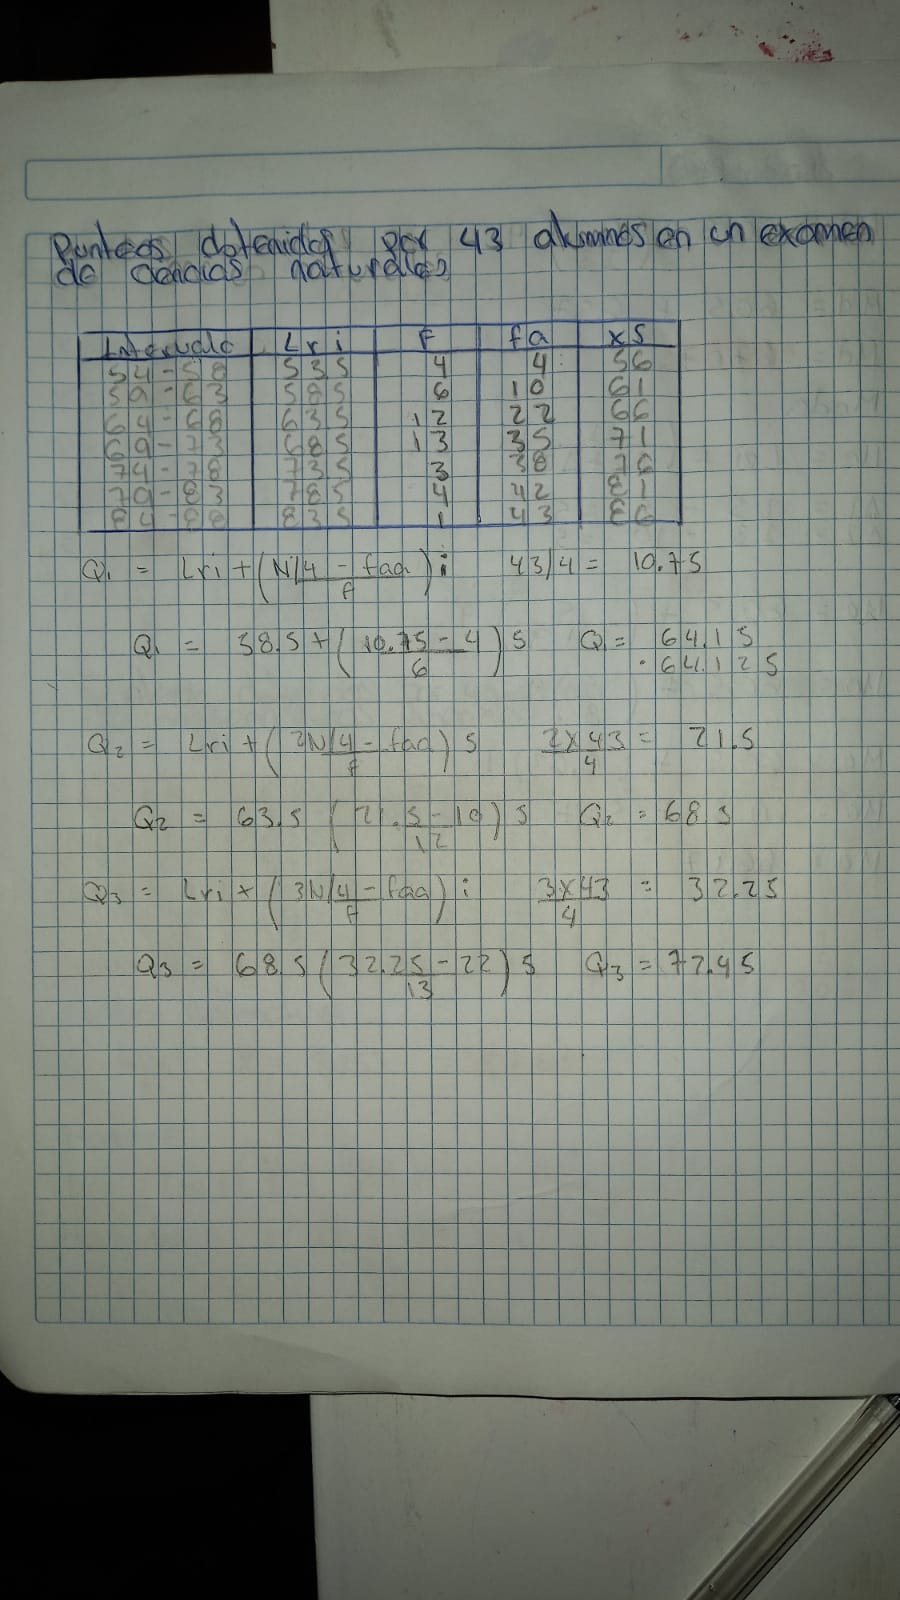 Punteos obtenidos por 43 alumnos en un examen
de ciencias naturales
Intervalo Lri F fa xs
54-58 535 4 4 56
59-63 585 6 10 61
64-68 635 12 22 66
69-73 685 13 35 71
74-78 735 3 38 76
79-83 785 4 42 81
84-88 835 1 43 86
Q1 = Lri + (N/4 - faa / f) i 43/4 = 10.75
Q1 = 58.5 + (10.75 - 4 / 6) 5 Q = 64.15
. 64.125
Q2 = Lri + (2N/4 - faa / f) 5 2x43/4 = 21.5
Q2 = 63.5 (21.5 - 10 / 12) 5 Q2 = 68 3
Q3 = Lri + (3N/4 - faa / f) i 3x43/4 = 32.25
Q3 = 68.5 (32.25 - 22 / 13) 5 Q3 = 72.45